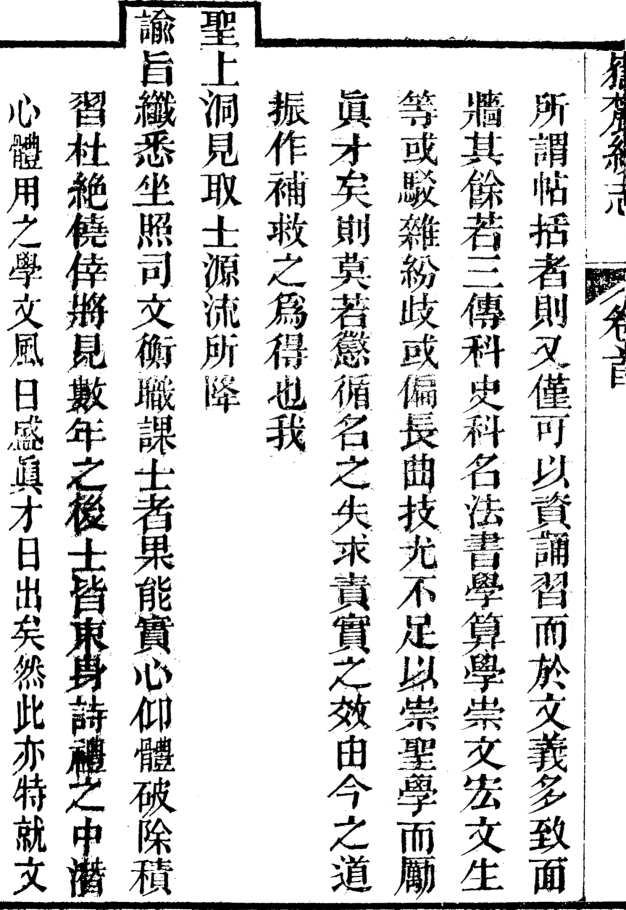 嶽麓續志
卷首
所謂帖括者則又僅可以資誦習而於文義多致面
牆其餘若三傳科史科名法書學算學崇文宏文生
等或駁雜紛歧或偏長曲技尤不足以崇聖學而勵
眞才矣則莫若懲循名之失求責實之效由今之道
振作補救之爲得也我
聖上洞見取士源流所降
諭旨纖悉坐照司文衡職課士者果能實心仰體破除積
習杜絶僥倖將見數年之後士皆束身詩禮之中潛
心體用之學文風日盛眞才日出矣然此亦特就文